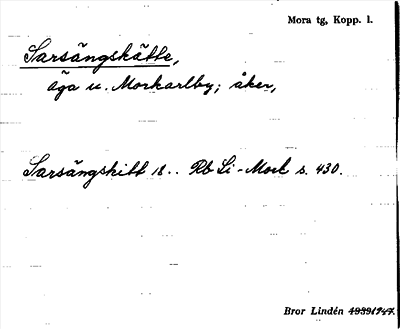 Mora tg, Kopp. l.
Sarsängskätte,
äga u. Morkarlby; åker,
Sarsängskitt 18.. Rb Li-Mork s. 430.
Bror Lindén